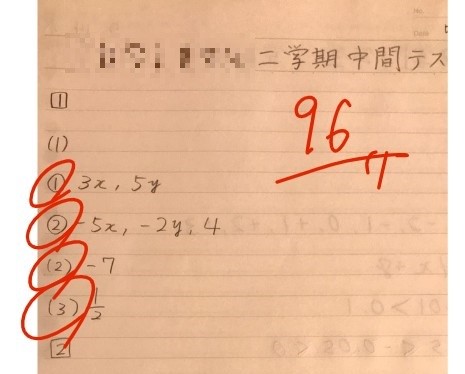 二学期中間テス
1
96
(1)
① 3x, 5y
② -5x, -2y, 4
(2) -7
(3) 1/2
2